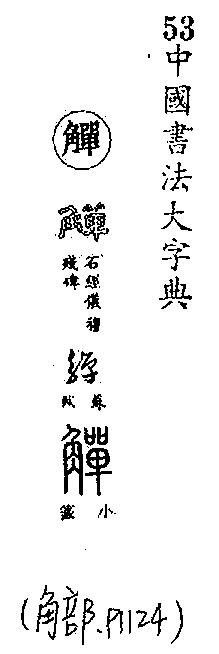 53中國書法大字典
觶
觶
石經儀禮
殘碑
觶
蘇軾
觶
小篆
(角部、P1124)